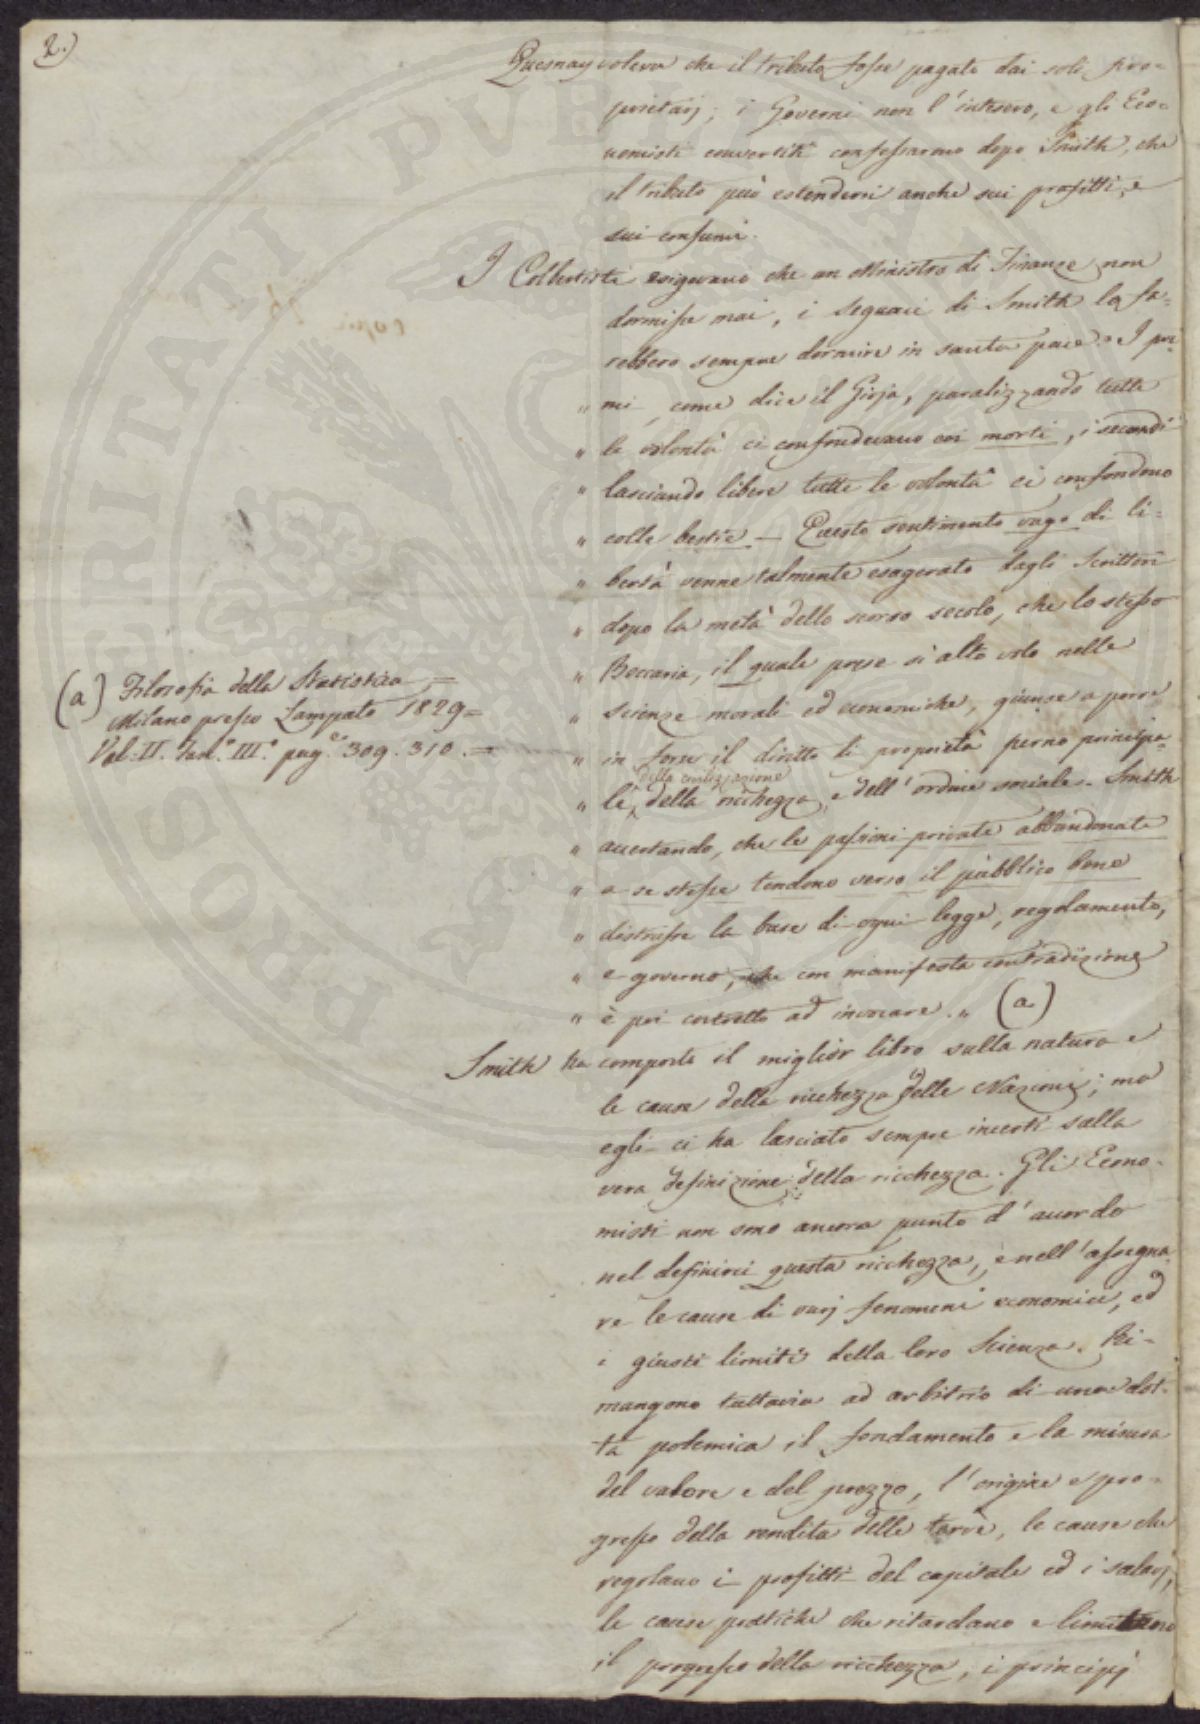 2.)
Quesnay voleva che il tributo fosse pagato dai soli pro=
prietarj; i Governi non l'intesero, e gli Eco=
nomisti convertiti confessarono dopo Smith, che
il tributo può estendersi anche sui profitti, e
sui consumi.
I Colbertisti esigevano che un Ministro di Finanze non
dormisse mai, i seguaci di Smith lo fa=
rebbero sempre dormire in santa pace. " I pri=
" mi, come dice il Gioja, paralizzando tutte
" le volontà ci confondevano coi morti, i secondi
" lasciando libere tutte le volontà ci confondono
" colle bestie — Questo sentimento vago di li=
" bertà venne talmente esagerato dagli Scrittori
" dopo la metà dello scorso secolo, che lo stesso
" Beccaria, il quale prese sì alto volo nelle
" scienze morali ed economiche, giunse a porre
" in forse il diritto di proprietà perno principa=
della civilizzazione
" le, della ricchezza, e dell'ordine sociale. Smith
" accertando, che le passioni private abbandonate
" a se stesse tendono verso il pubblico bene
" distrusse la base di ogni legge, regolamento,
" e governo, che con manifesta contradizione
" è poi costretto ad invocare. " (a.)
(a) Filosofia della Statistica =
Milano presso Lampato 1829 =
Vol. II. pag.e 309. 310. =
Smith ha composto il miglior libro sulla natura e
le cause della ricchezza delle Nazioni; ma
egli ci ha lasciato sempre incerti sulla
vera definizione della ricchezza. Gli Econo=
misti non sono ancora punto d'accordo
nel definirci questa ricchezza, e nell'assegna=
re le cause di varj fenomeni economici, ed
i giusti limiti della loro Scienza. Ri=
mangono tuttavia ad arbitrio di una dot=
ta polemica il fondamento e la misura
del valore e del prezzo, l'origine e pro=
gresso della rendita delle terre, le cause che
regolano i profitti del capitale ed i salarj,
le cause pratiche che ritardano e limitano
il progresso della ricchezza, i principj
PROSPERITATI PVBLICAE